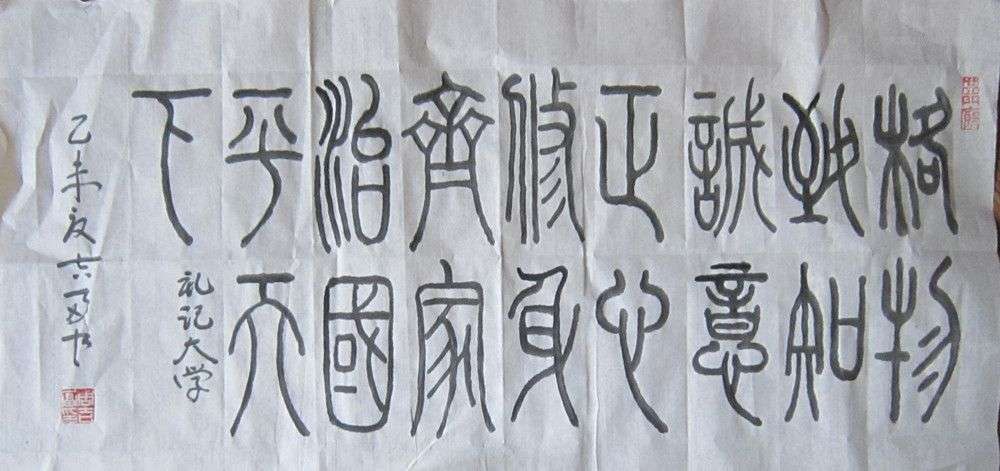 格物
致知
誠意
正心
修身
齊家
治國
平天
下
礼记大学
乙未夏吉